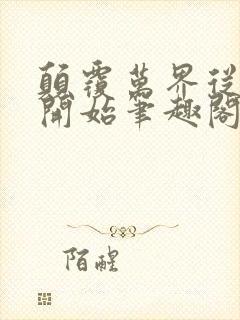 顛覆萬界從
開始筆趣閣
陌醒